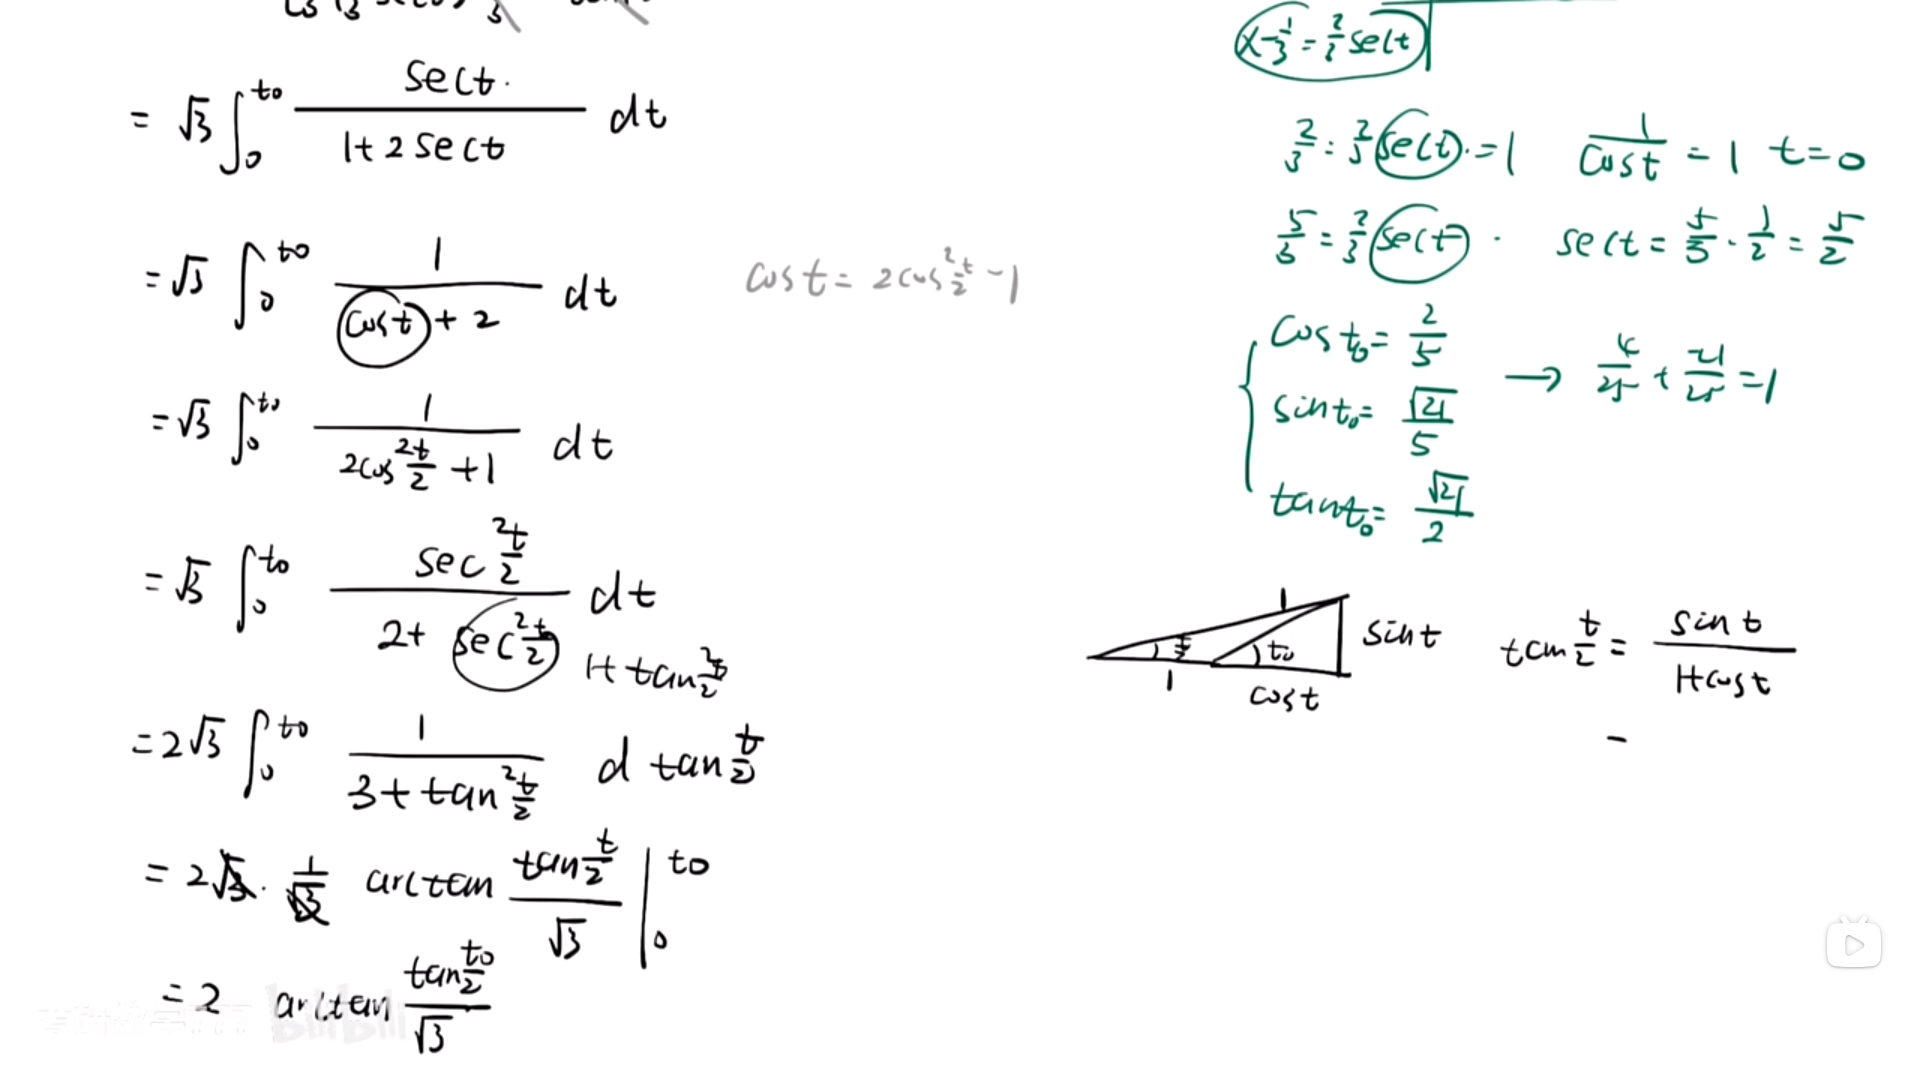 = √3 ∫₀^{t0} sect / (1+2sect) dt
= √3 ∫₀^{t0} 1 / (cost + 2) dt
cost = 2cos²(t/2) - 1
= √3 ∫₀^{t0} 1 / (2cos²(t/2) + 1) dt
= √3 ∫₀^{t0} sec²(t/2) / (2 + sec²(t/2)) dt
1+tan²(t/2)
= 2√3 ∫₀^{t0} 1 / (3 + tan²(t/2)) d tan(t/2)
= 2√3 · 1/√3 arctan (tan(t/2) / √3) |₀^{t0}
= 2 arctan (tan(t0/2) / √3)
x-1/3 = 2/3 sect
2/3 = 2/3 sect · = 1 1/cost = 1 t=0
5/3 = 2/3 sect · sect = 5/3 · 3/2 = 5/2
cost₀ = 2/5
sint₀ = √21/5
→ 4/25 + 21/25 = 1
tant₀ = √21/2
1
t/2
t0
sint
1
cost
tan(t/2) = sint / (1+cost)
-
bilibili